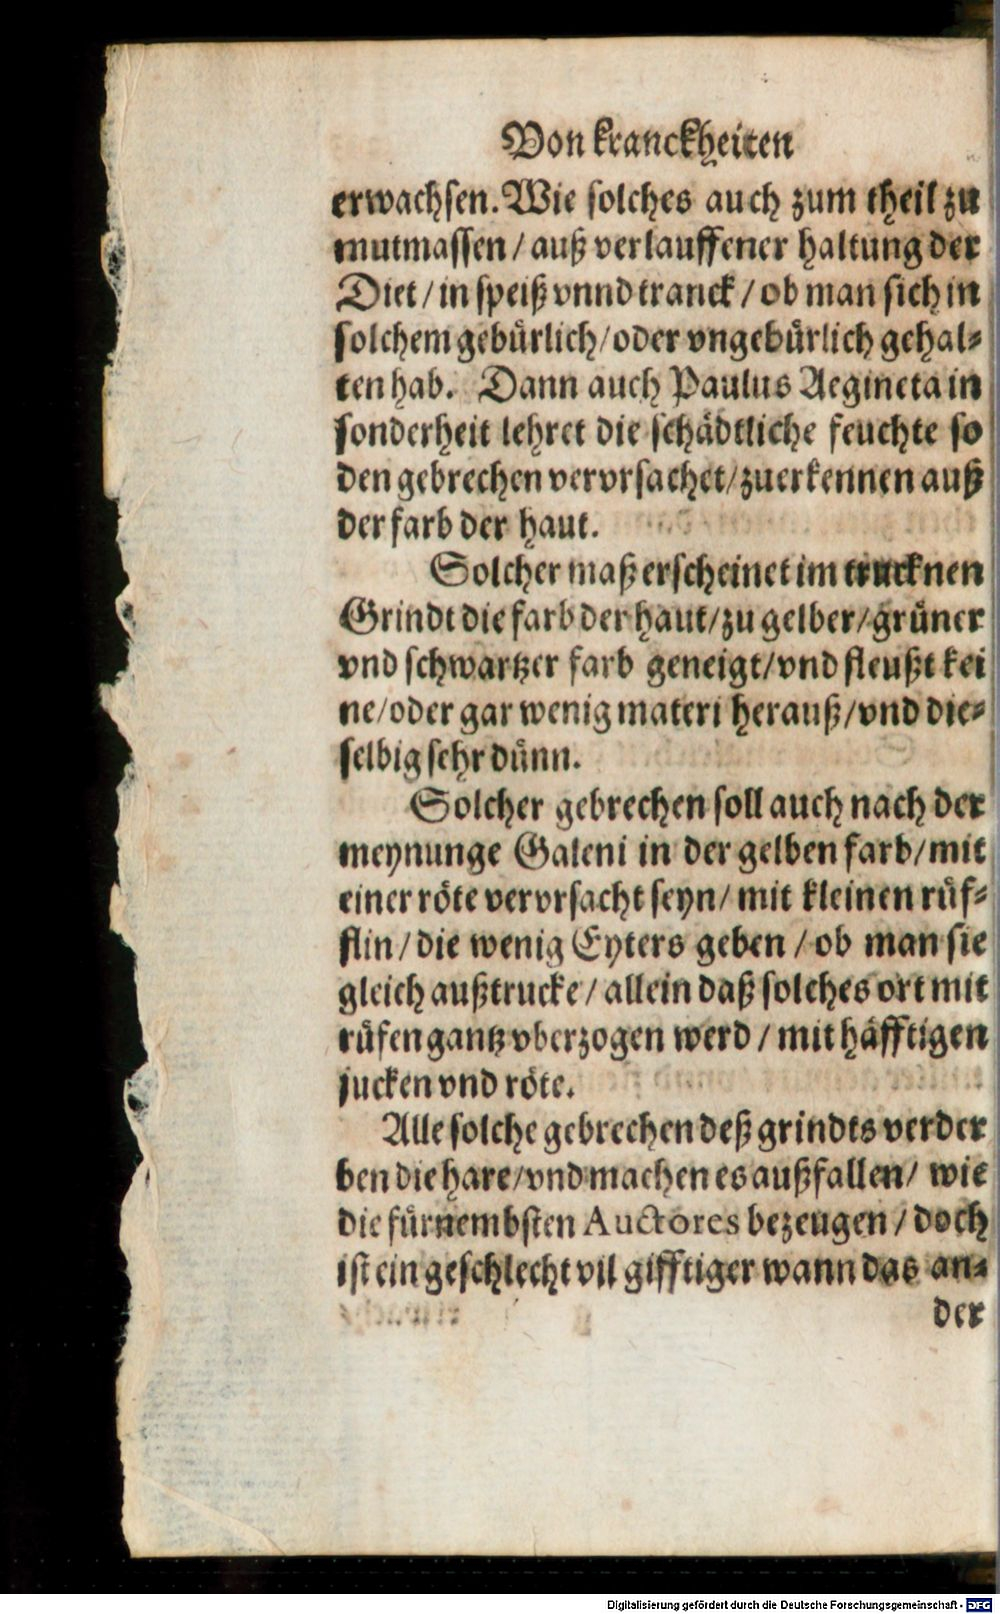 Von kranckheiten
erwachsen. Wie solches auch zum theil zu
mutmassen / auß verlauffener haltung der
Diet / in speiß vnnd tranck / ob man sich in
solchem gebürlich / oder vngebürlich gehal⸗
ten hab. Dann auch Paulus Aegineta in
sonderheit lehret die schädtliche feuchte so
den gebrechen vervrsachet / zuerkennen auß
der farb der haut.
Solcher maß erscheinet im trucknen
Grindt die farb der haut / zu gelber / grüner
vnd schwartzer farb geneigt / vnd fleußt kei
ne / oder gar wenig materi herauß / vnd die⸗
selbig sehr dünn.
Solcher gebrechen soll auch nach der
meynunge Galeni in der gelben farb / mit
einer röte vervrsacht seyn / mit kleinen rüf⸗
flin / die wenig Eyters geben / ob man sie
gleich außtrucke / allein daß solches ort mit
rüfen gantz vberzogen werd / mit häfftigen
jucken vnd röte.
Alle solche gebrechen deß grindts verder
ben die hare / vnd machen es außfallen / wie
die fürnembsten Auctores bezeugen / doch
ist ein geschlecht vil gifftiger wann das an⸗
der
Digitalisierung gefördert durch die Deutsche Forschungsgemeinschaft - DFG